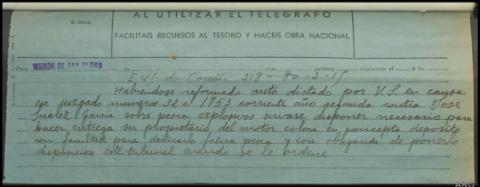 AL UTILIZAR EL TELEGRAFO
FACILITAIS RECURSOS AL TESORO Y HACEIS OBRA NACIONAL
de Coruña 318 - 80 - 3 - 15
Habiendose reformado auto dictado por V.S. en causa
ese juzgado numero 32 de 1953 corriente año seguida contra Jose
Suarez Garcia sobre pesca explosivos sirvase disponer necesario para
hacer entrega su propietario del motor colon en concepto deposito
con facultad para dedicarlo faena pesca y con obligacion de ponerlo
disposicion este tribunal cuando se le ordene